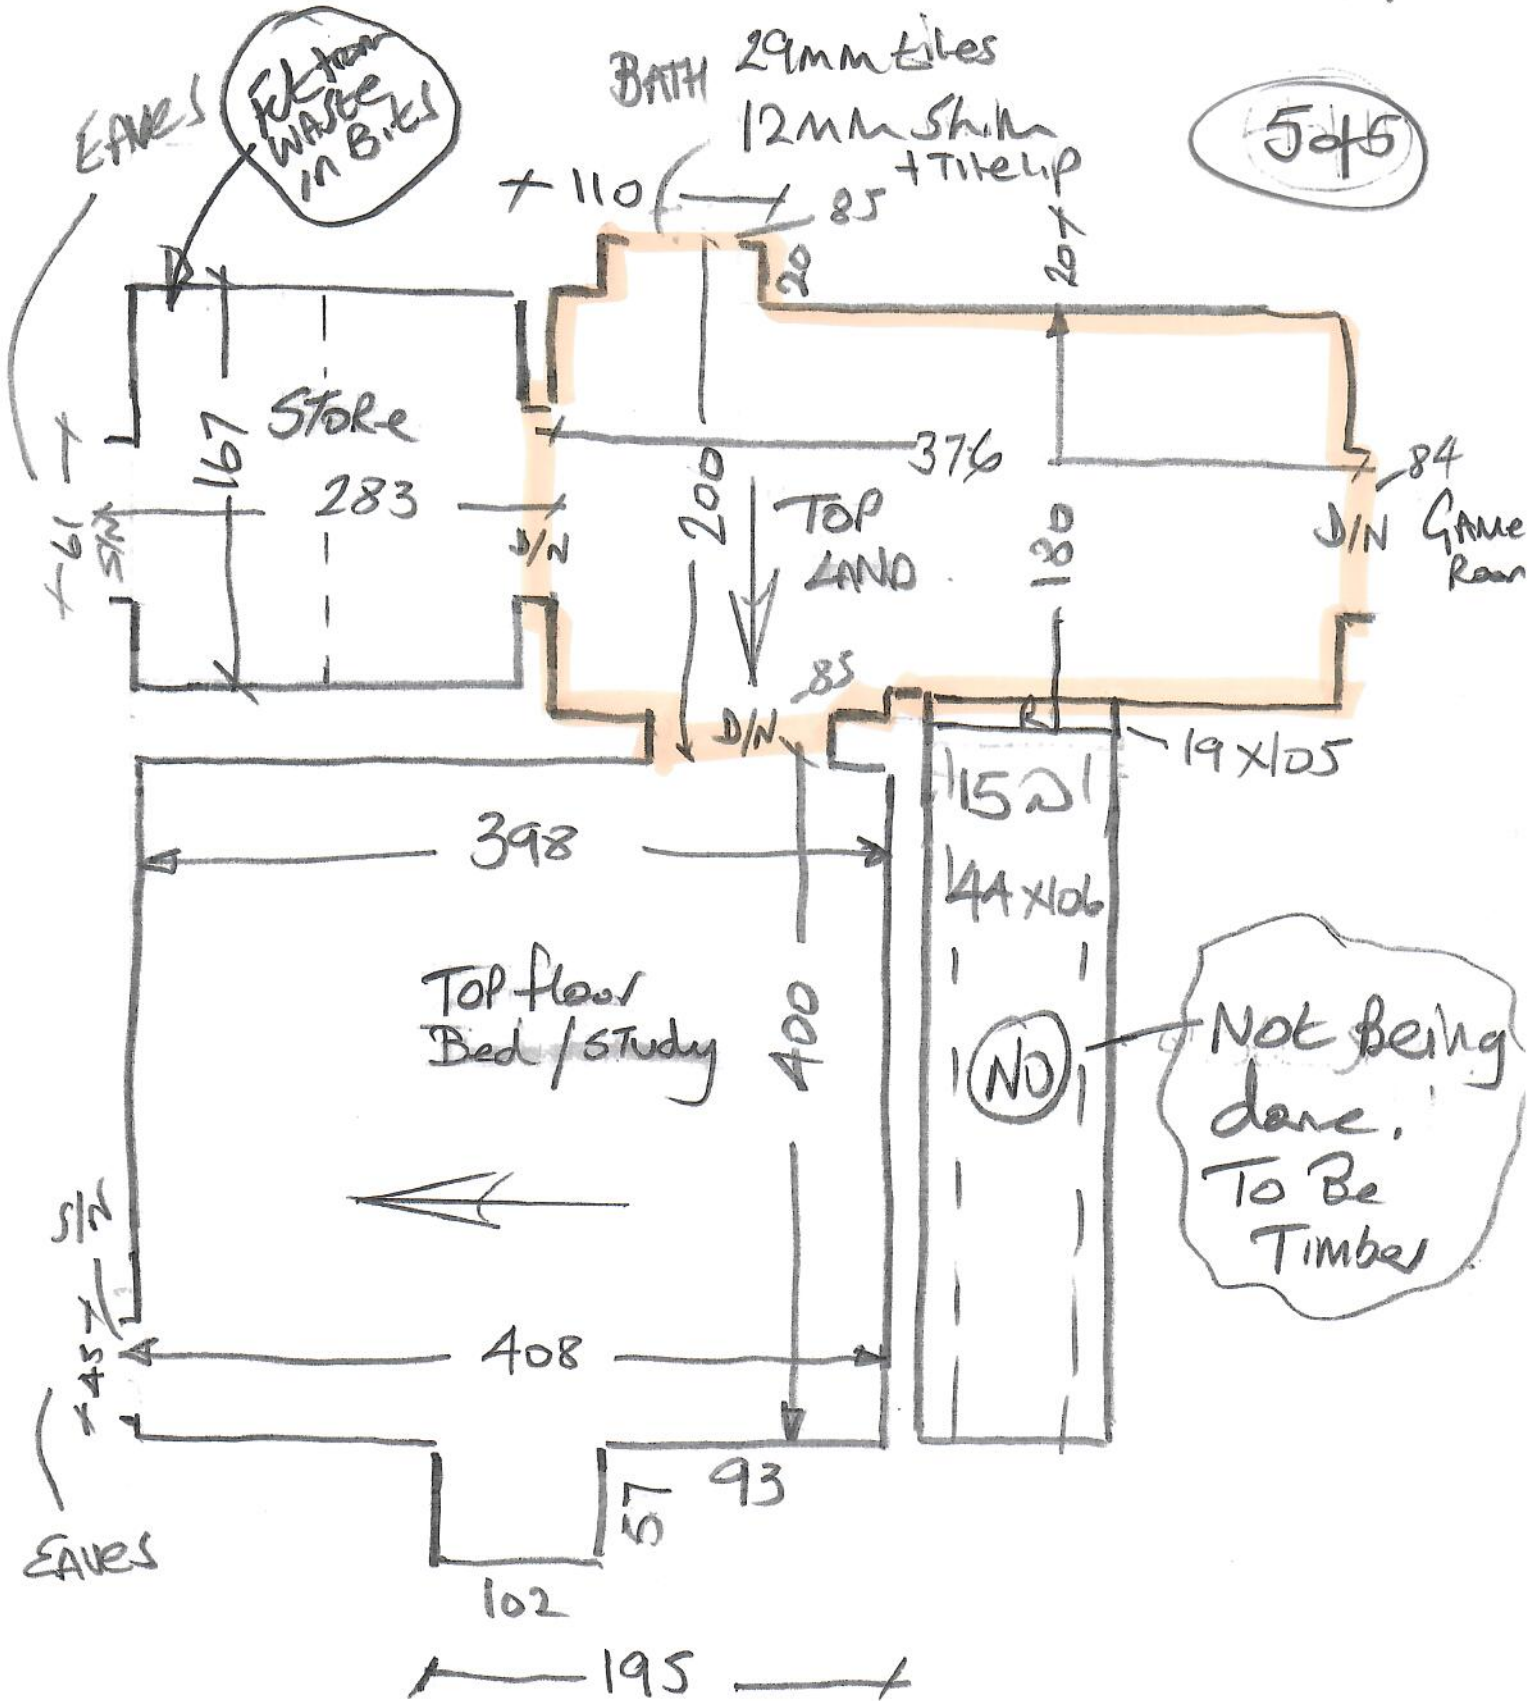 EAVES
Fit from
WASTE
in Bits
BATH
29mm tiles
12mm Skim
+ Tile Lip
5 of 5
110
85
20
207
STORE
167
283
61
S/N
D/N
376
200
TOP
LAND
180
84
D/N
GAME
Room
85
D/N
R
19x105
15
44x106
398
400
TOP floor
Bed / STudy
NO
Not Being
done.
To Be
Timber
S/N
45
408
EAVES
57
93
102
195